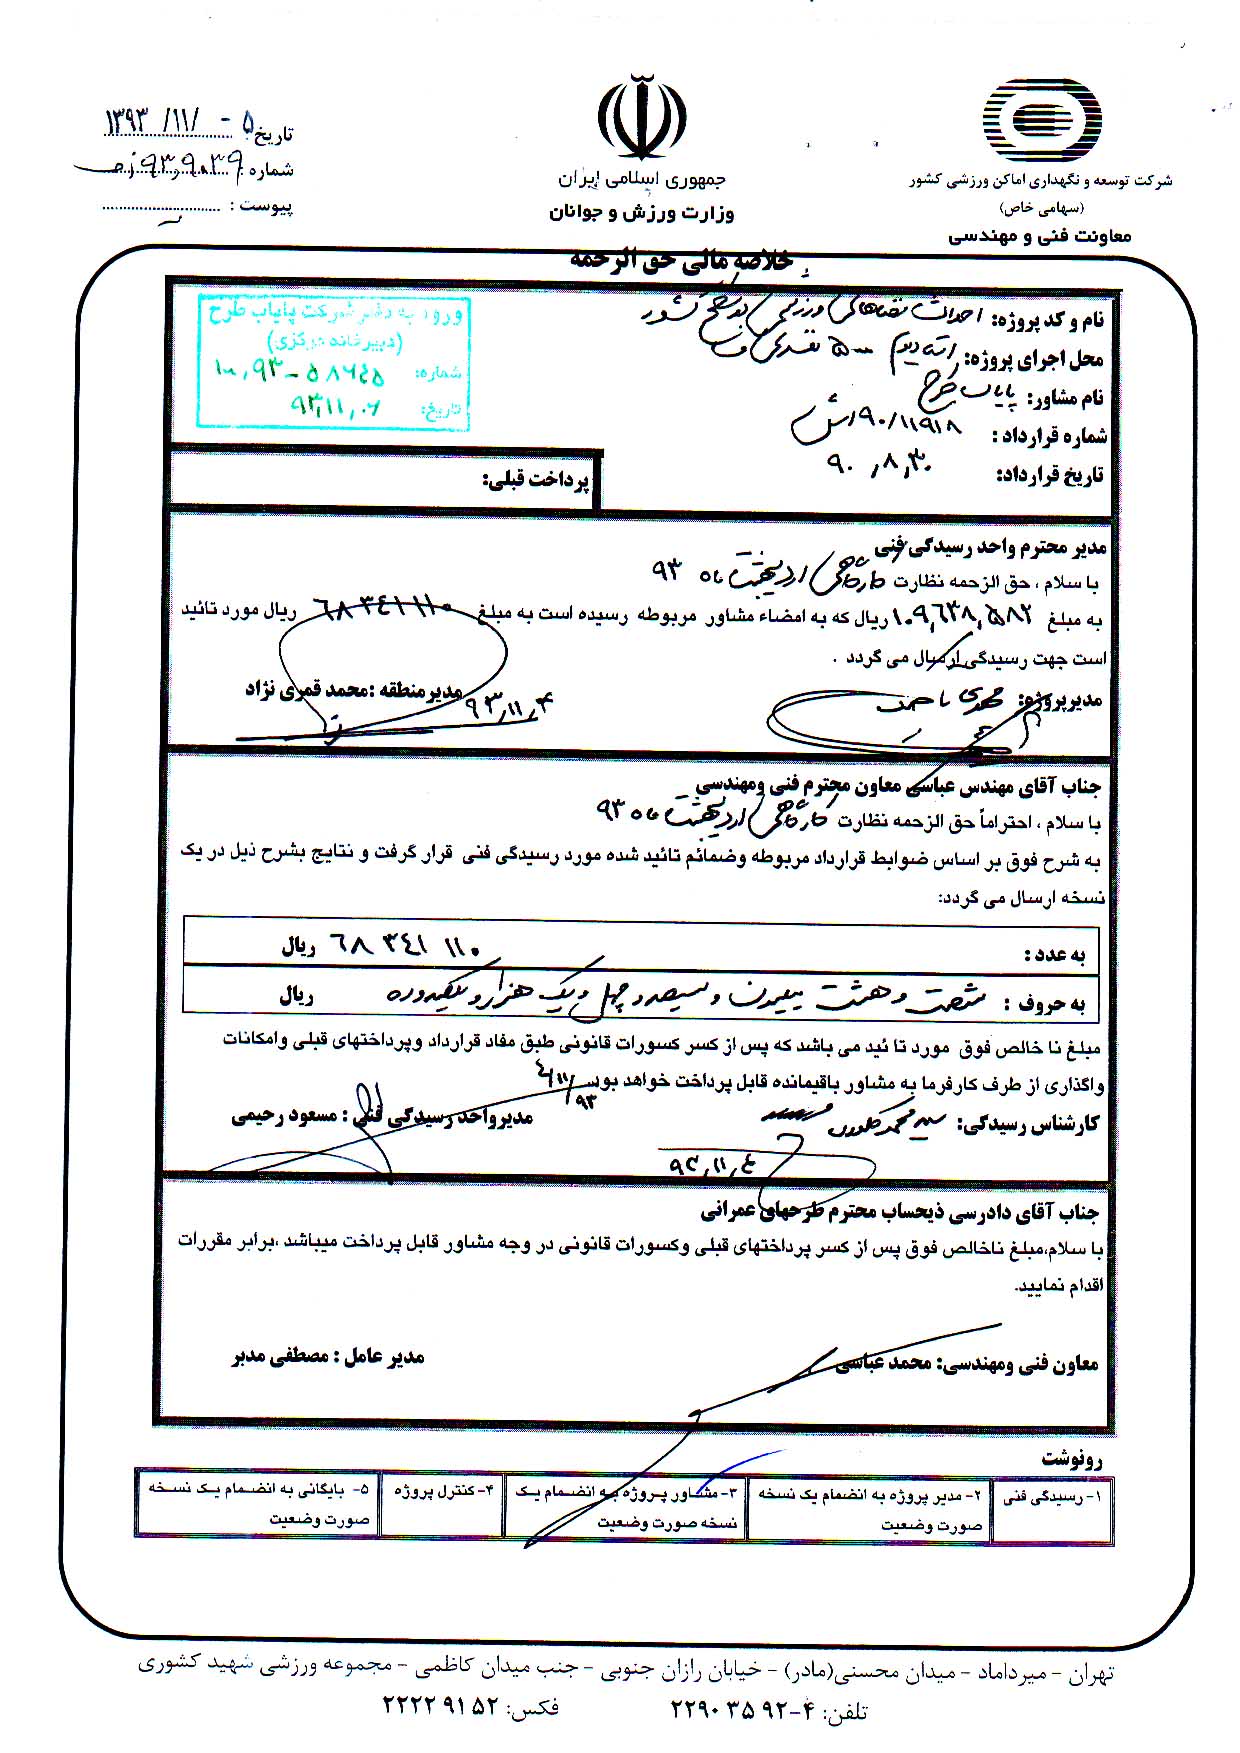 جمهوری اسلامی ایران
وزارت ورزش و جوانان
شرکت توسعه و نگهداری اماکن ورزشی کشور
(سهامی خاص)
معاونت فنی و مهندسی
تاریخ: ۱۳۹۳/۱۱/۰۵
شماره
پیوست :
خلاصه مالی حق الزحمه
نام و کد پروژه: احداث فضاهای ورزشی در سطح کشور
محل اجرای پروژه: استادیوم ۵۰۰۰ نفری
نام مشاور: پایاب طرح
شماره قرارداد : ۹۰/۱۱۹۱۸/ش
تاریخ قرارداد: ۹۰,۸,۳۰
ورود به دفتر شرکت پایاب طرح
(دبیرخانه مرکزی)
شماره: ۱۰۰,۹۳-۵۸۶۴۵
تاریخ: ۹۳,۱۱,۰۶
پرداخت قبلی:
مدیر محترم واحد رسیدگی فنی
با سلام ، حق الزحمه نظارت کارگاهی اردیبهشت ماه ۹۳
به مبلغ ۱۰۹,۶۳۸,۵۸۲ ریال که به امضاء مشاور مربوطه رسیده است به مبلغ ۶۸۳۴۱۱۱۰ ریال مورد تائید
است جهت رسیدگی ارسال می گردد .
مدیرپروژه:
مدیرمنطقه :محمد قمری نژاد
۹۳,۱۱,۴
جناب آقای مهندس عباسی معاون محترم فنی ومهندسی
با سلام ، احتراماً حق الزحمه نظارت کارگاهی اردیبهشت ماه ۹۳
به شرح فوق بر اساس ضوابط قرارداد مربوطه وضمائم تائید شده مورد رسیدگی فنی قرار گرفت و نتایج بشرح ذیل در یک
نسخه ارسال می گردد:
به عدد : ۶۸ ۳۴۱ ۱۱۰ ریال
به حروف : شصت و هشت میلیون و سیصد و چهل و یک هزار و یکصد و ده ریال
مبلغ نا خالص فوق مورد تا ئید می باشد که پس از کسر کسورات قانونی طبق مفاد قرارداد وپرداختهای قبلی وامکانات
واگذاری از طرف کارفرما به مشاور باقیمانده قابل پرداخت خواهد بود
کارشناس رسیدگی: سید محمد
مدیرواحد رسیدگی فنی : مسعود رحیمی
۹۳,۱۱,۴
جناب آقای دادرسی ذیحساب محترم طرحهای عمرانی
با سلام،مبلغ ناخالص فوق پس از کسر پرداختهای قبلی وکسورات قانونی در وجه مشاور قابل پرداخت میباشد ،برابر مقررات
اقدام نمایید.
معاون فنی ومهندسی: محمد عباسی
مدیر عامل : مصطفی مدبر
رونوشت
۱- رسیدگی فنی
۲- مدیر پروژه به انضمام یک نسخه
صورت وضعیت
۳- مشاور پروژه به انضمام یک
نسخه صورت وضعیت
۴- کنترل پروژه
۵- بایگانی به انضمام یک نسخه
صورت وضعیت
تهران - میرداماد - میدان محسنی(مادر) - خیابان رازان جنوبی - جنب میدان کاظمی - مجموعه ورزشی شهید کشوری
تلفن: ۴-۲۲۹۰۳۵۹۲ فکس: ۲۲۲۲۹۱۵۲